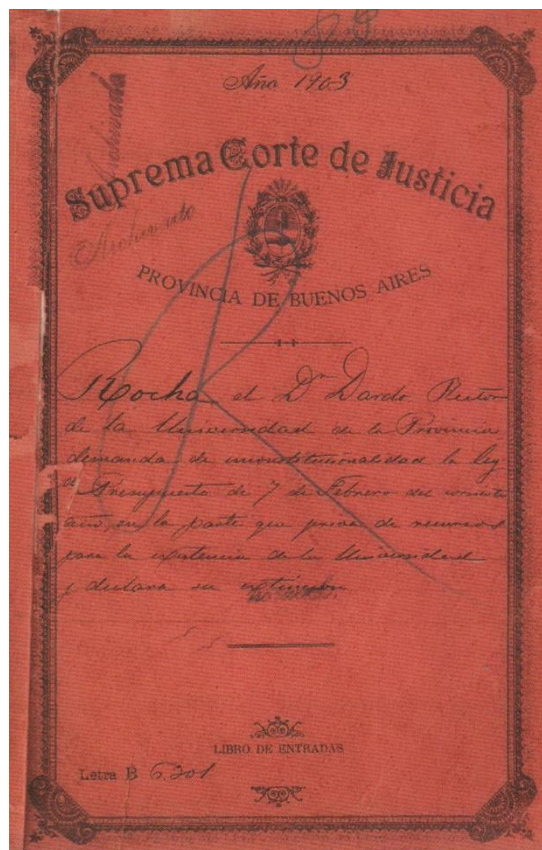 Año 1903
Archivado
Suprema Corte de Justicia
Archivado
PROVINCIA DE BUENOS AIRES
Rocha el Dr Dardo Rector
de la Universidad de la Provincia
demanda de inconstitucionalidad la ley
de Presupuesto de 7 de Febrero del corriente
año, en la parte que priva de recursos
para la existencia de la Universidad
y declara su extincion
LIBRO DE ENTRADAS
Letra B 6.201